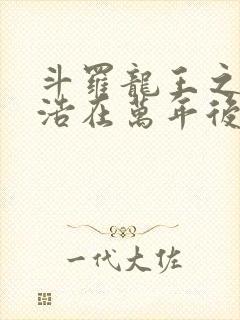 斗羅龍王之
浩在萬年後
一代大佐